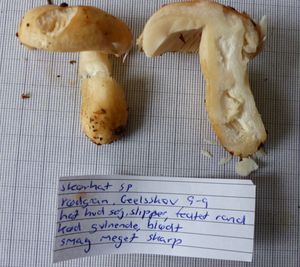 skørhat sp
rødgran, Geelsskov 9-9
hat hud sej, slipper, teatet rand
kød gulnende, blødt
smag meget skarp